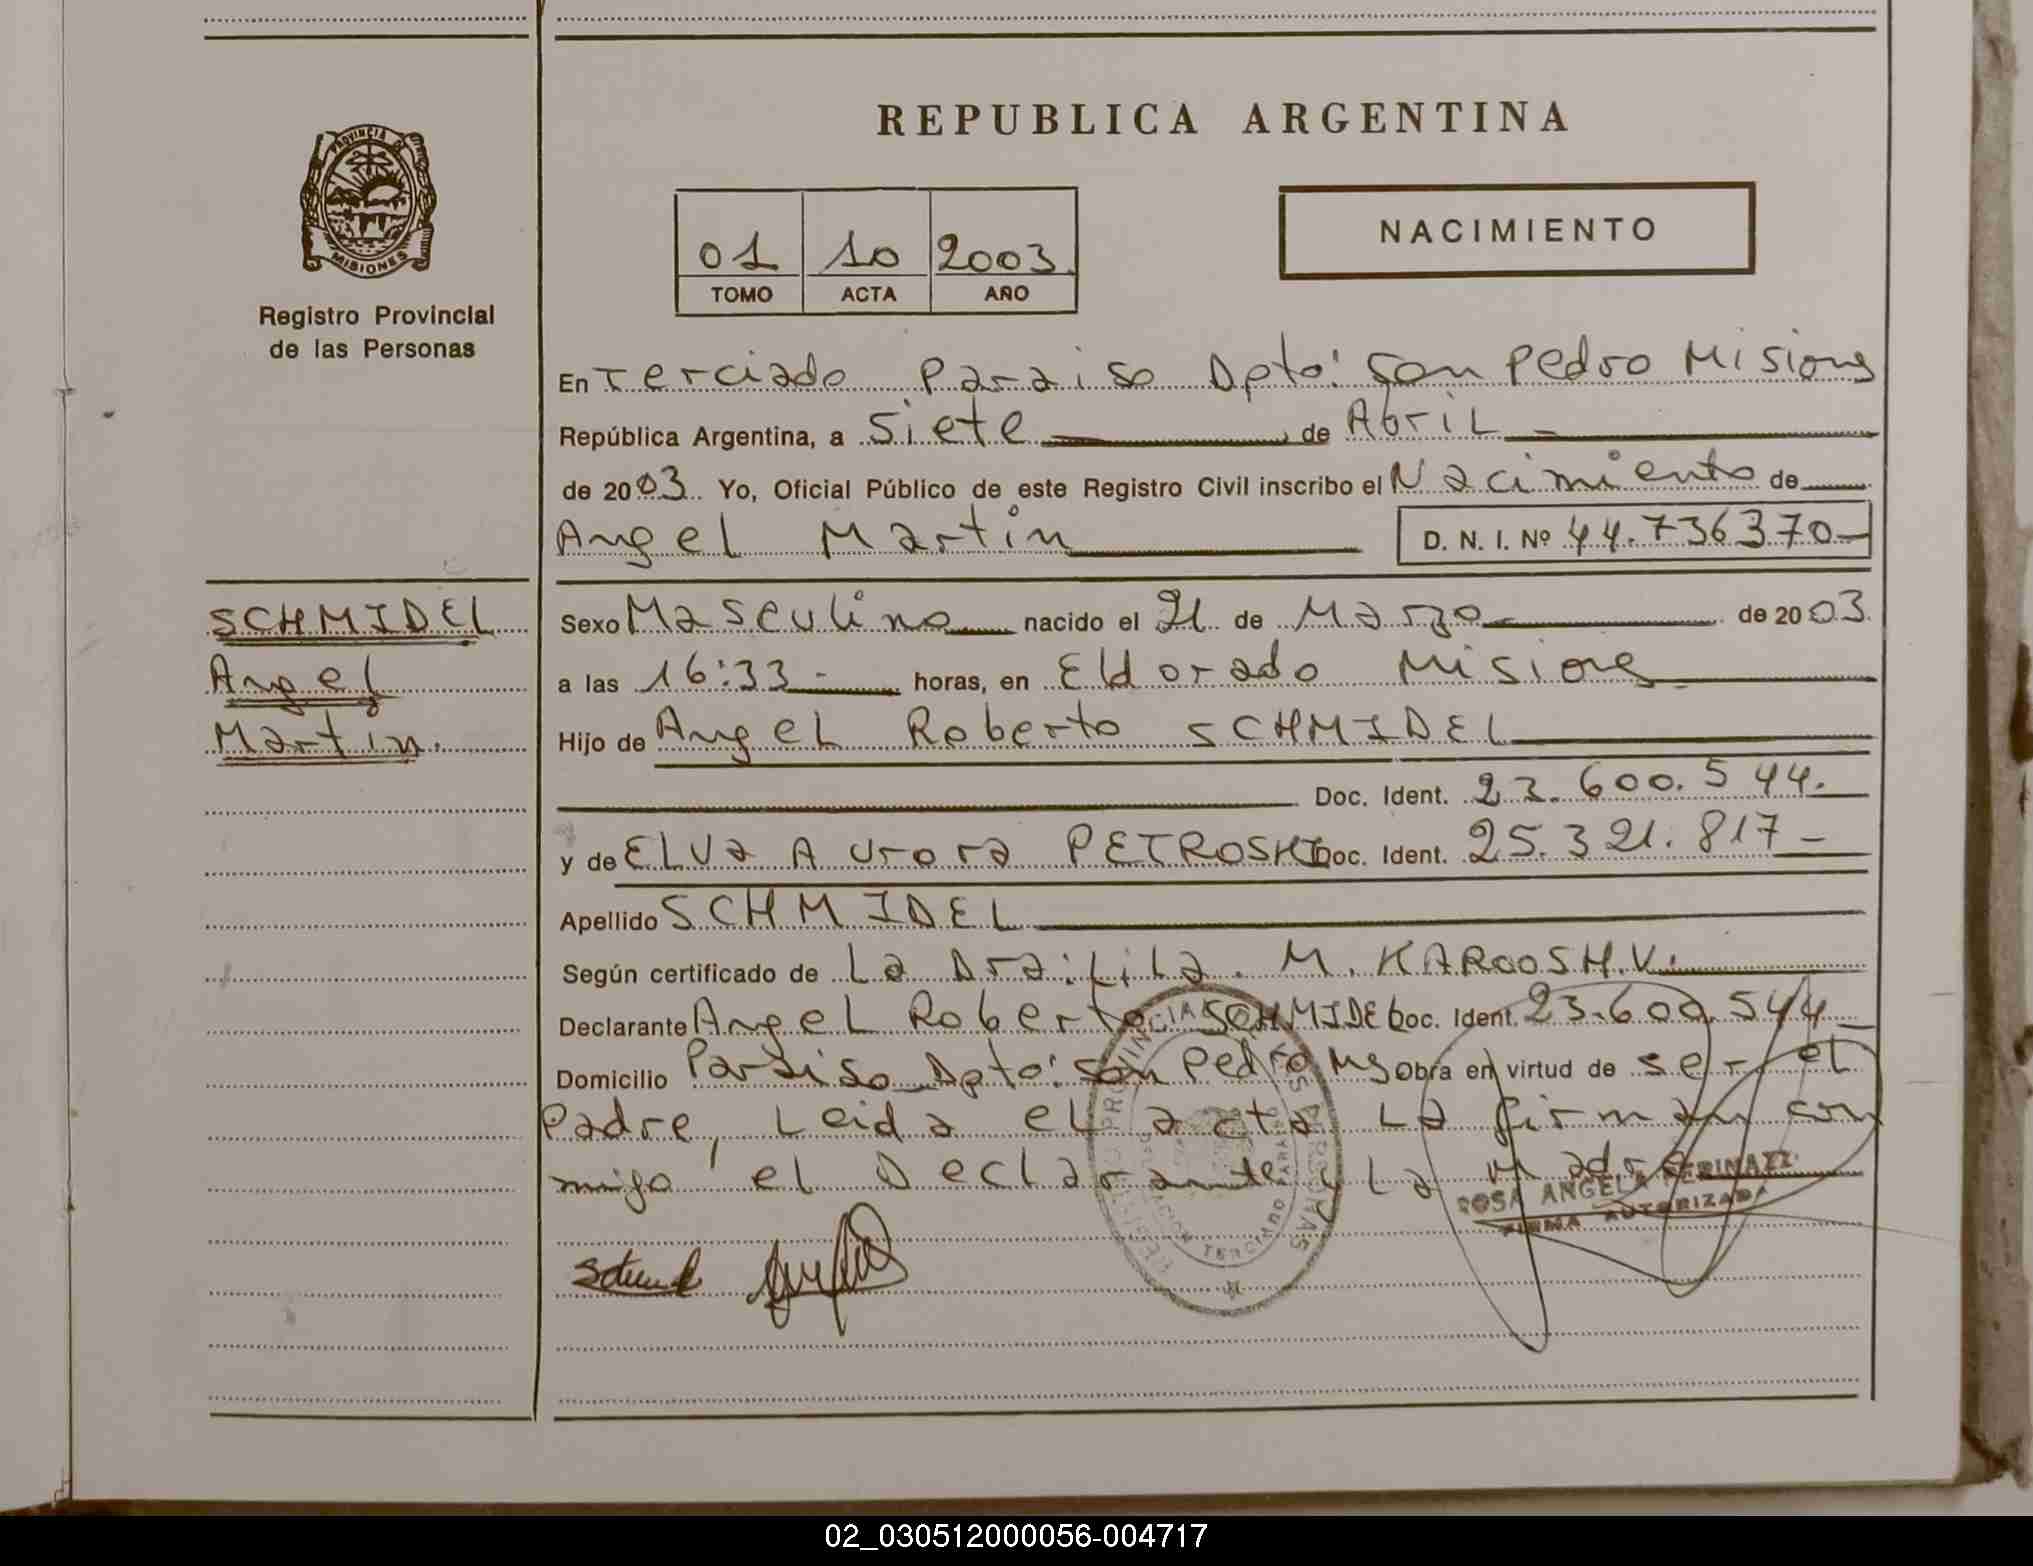 REPUBLICA ARGENTINA
PROVINCIA DE
MISIONES
Registro Provincial
de las Personas
NACIMIENTO
01 10 2003
TOMO ACTA AÑO
En Terciado Paraiso Dpto: San Pedro Misiones
República Argentina, a Siete de Abril
de 2003 Yo, Oficial Público de este Registro Civil inscribo el Nacimiento de
Angel Martin D. N. I. Nº 44.736370
SCHMIDEL
Angel
Martin.
Sexo Masculino nacido el 21 de Marzo de 2003
a las 16:33 horas, en Eldorado Misiones
Hijo de Angel Roberto SCHMIDEL
Doc. Ident. 23.600.544.
y de ELVa Aurora PETROSKI Doc. Ident. 25.321.817
Apellido SCHMIDEL
Según certificado de La Dra: Lila. M.
Declarante Angel Roberto SCHMIDEL Doc. Ident. 23.600.544
Domicilio Paraiso Dpto: San Pedro Ms Obra en virtud de ser el
Padre, Leida el acta La firman con
migo el Declarante y La Madre
ROSA ANGELA
FIRMA AUTORIZADA
02_030512000056-004717